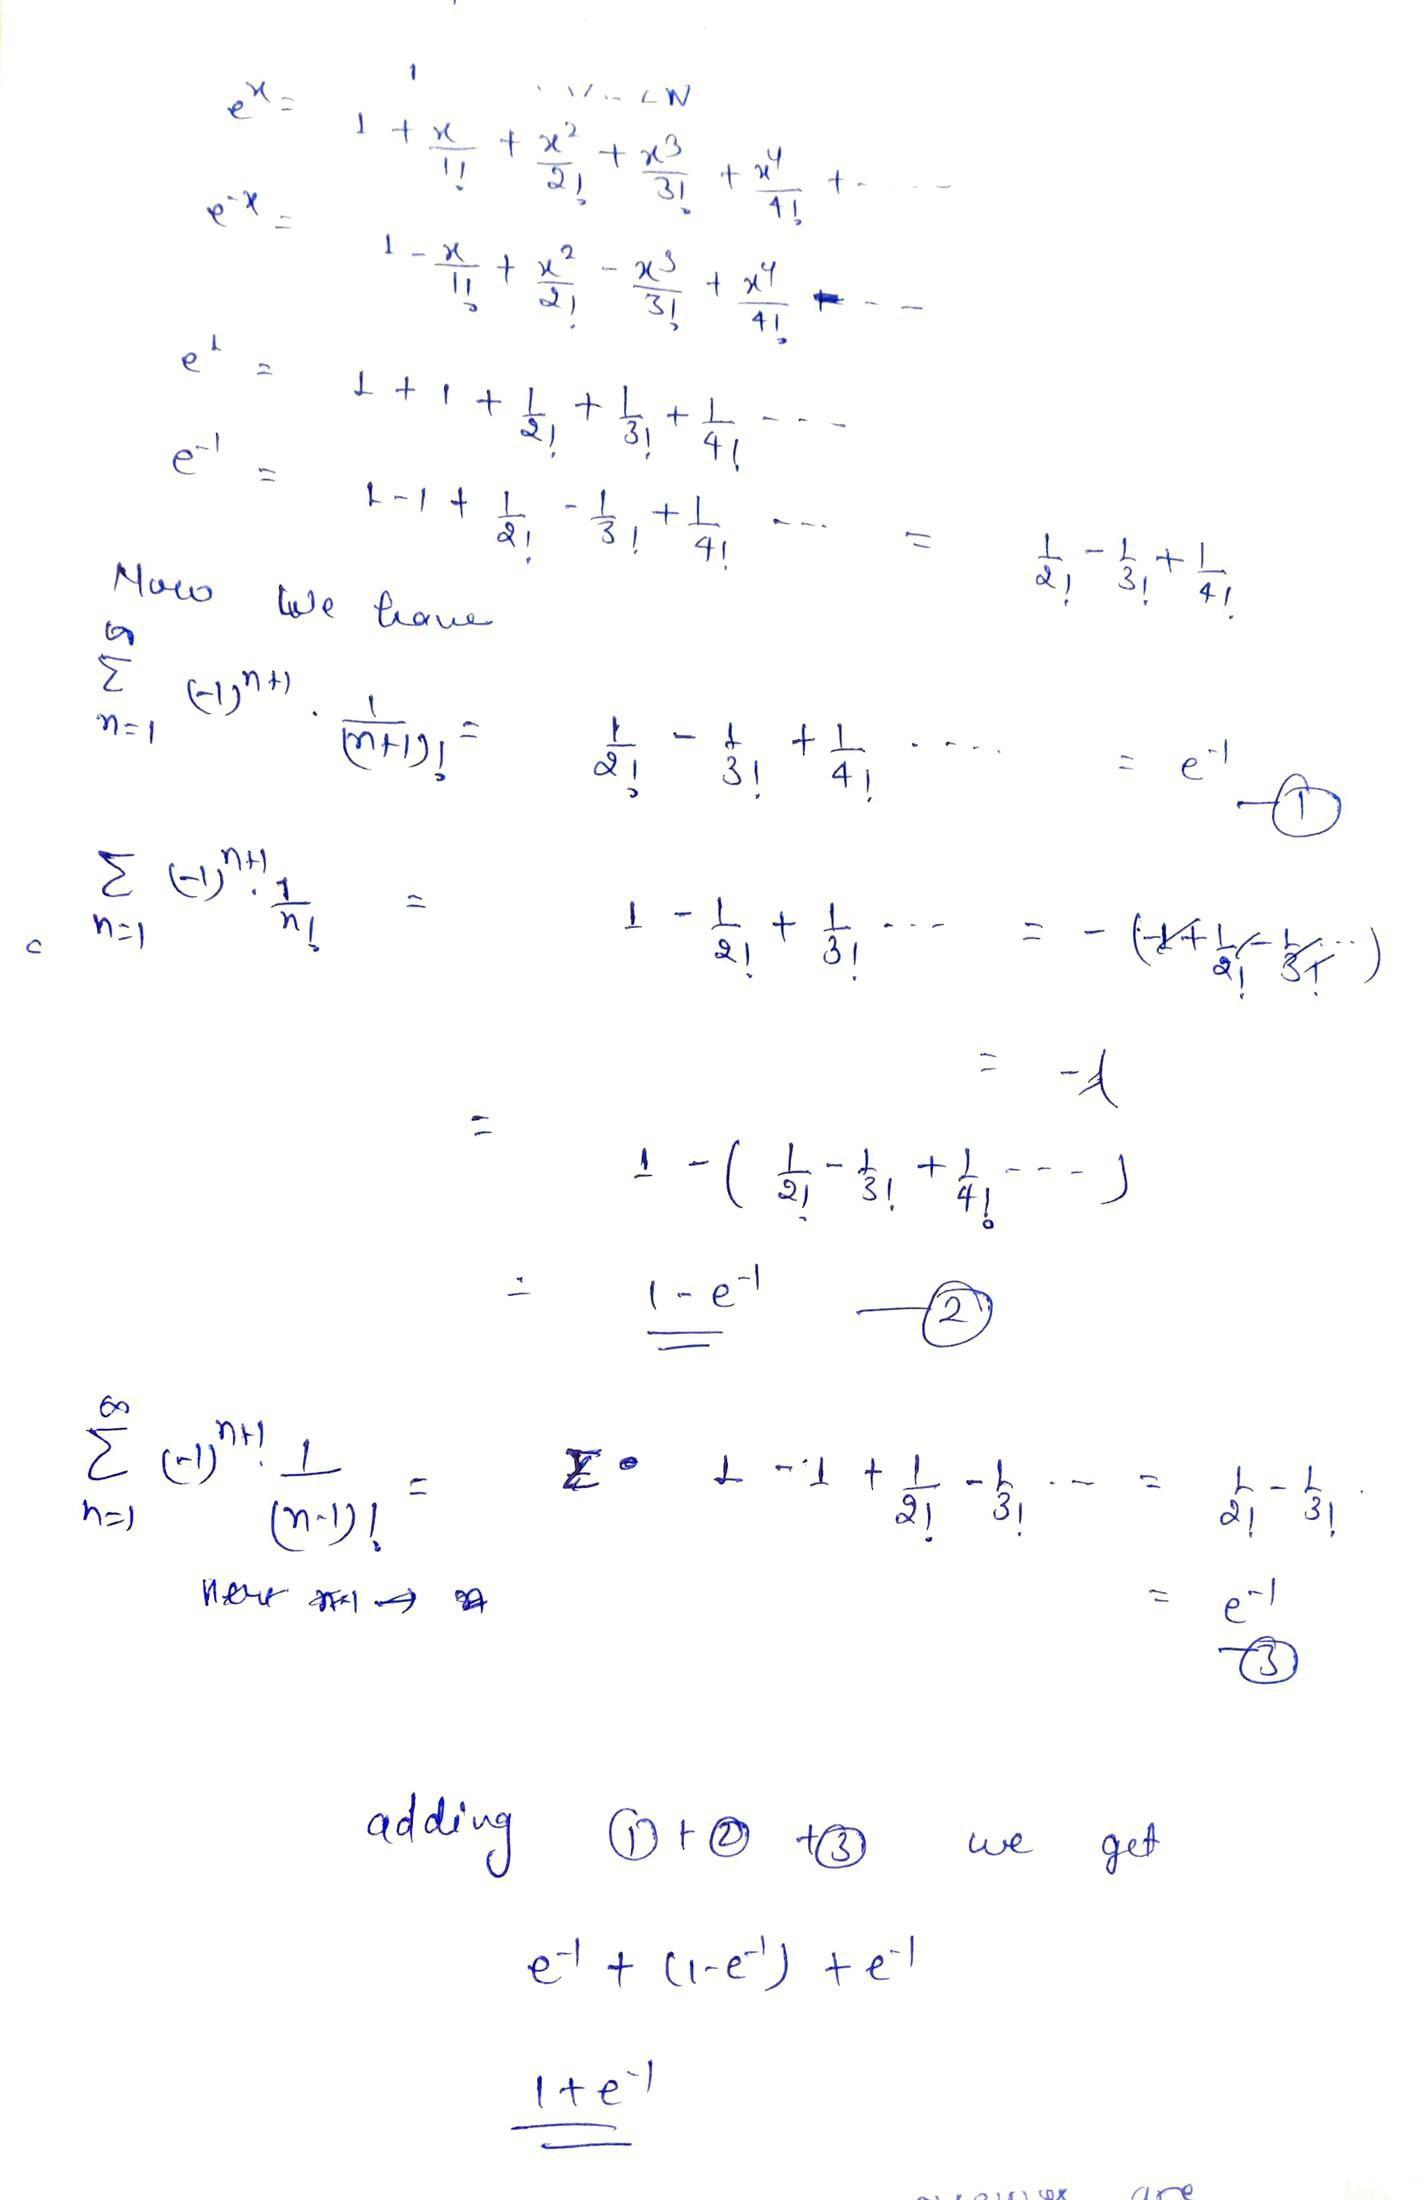 e^x = 1 + x/1! + x²/2! + x³/3! + x⁴/4! + - - - -
e^-x = 1 - x/1! + x²/2! - x³/3! + x⁴/4! - - -
e^1 = 1 + 1 + 1/2! + 1/3! + 1/4! - - -
e^-1 = 1 - 1 + 1/2! - 1/3! + 1/4! - - - = 1/2! - 1/3! + 1/4!
Now we have
∞ Σ n=1 (-1)^n+1 . 1/(n+1)! = 1/2! - 1/3! + 1/4! ..... = e^-1 — ①
Σ n=1 (-1)^n+1 . 1/n! = 1 - 1/2! + 1/3! .... = - (-1 + 1/2! - 1/3! ...)
= -1
= 1 - ( 1/2! - 1/3! + 1/4! - - - )
= 1 - e^-1 — ②
∞ Σ n=1 (-1)^n+1 . 1/(n-1)! = Σ 1 - 1 + 1/2! - 1/3! ... = 1/2! - 1/3! .
n-1 →
= e^-1
— ③
adding ① + ② + ③ we get
e^-1 + (1-e^-1) + e^-1
1 + e^-1
are